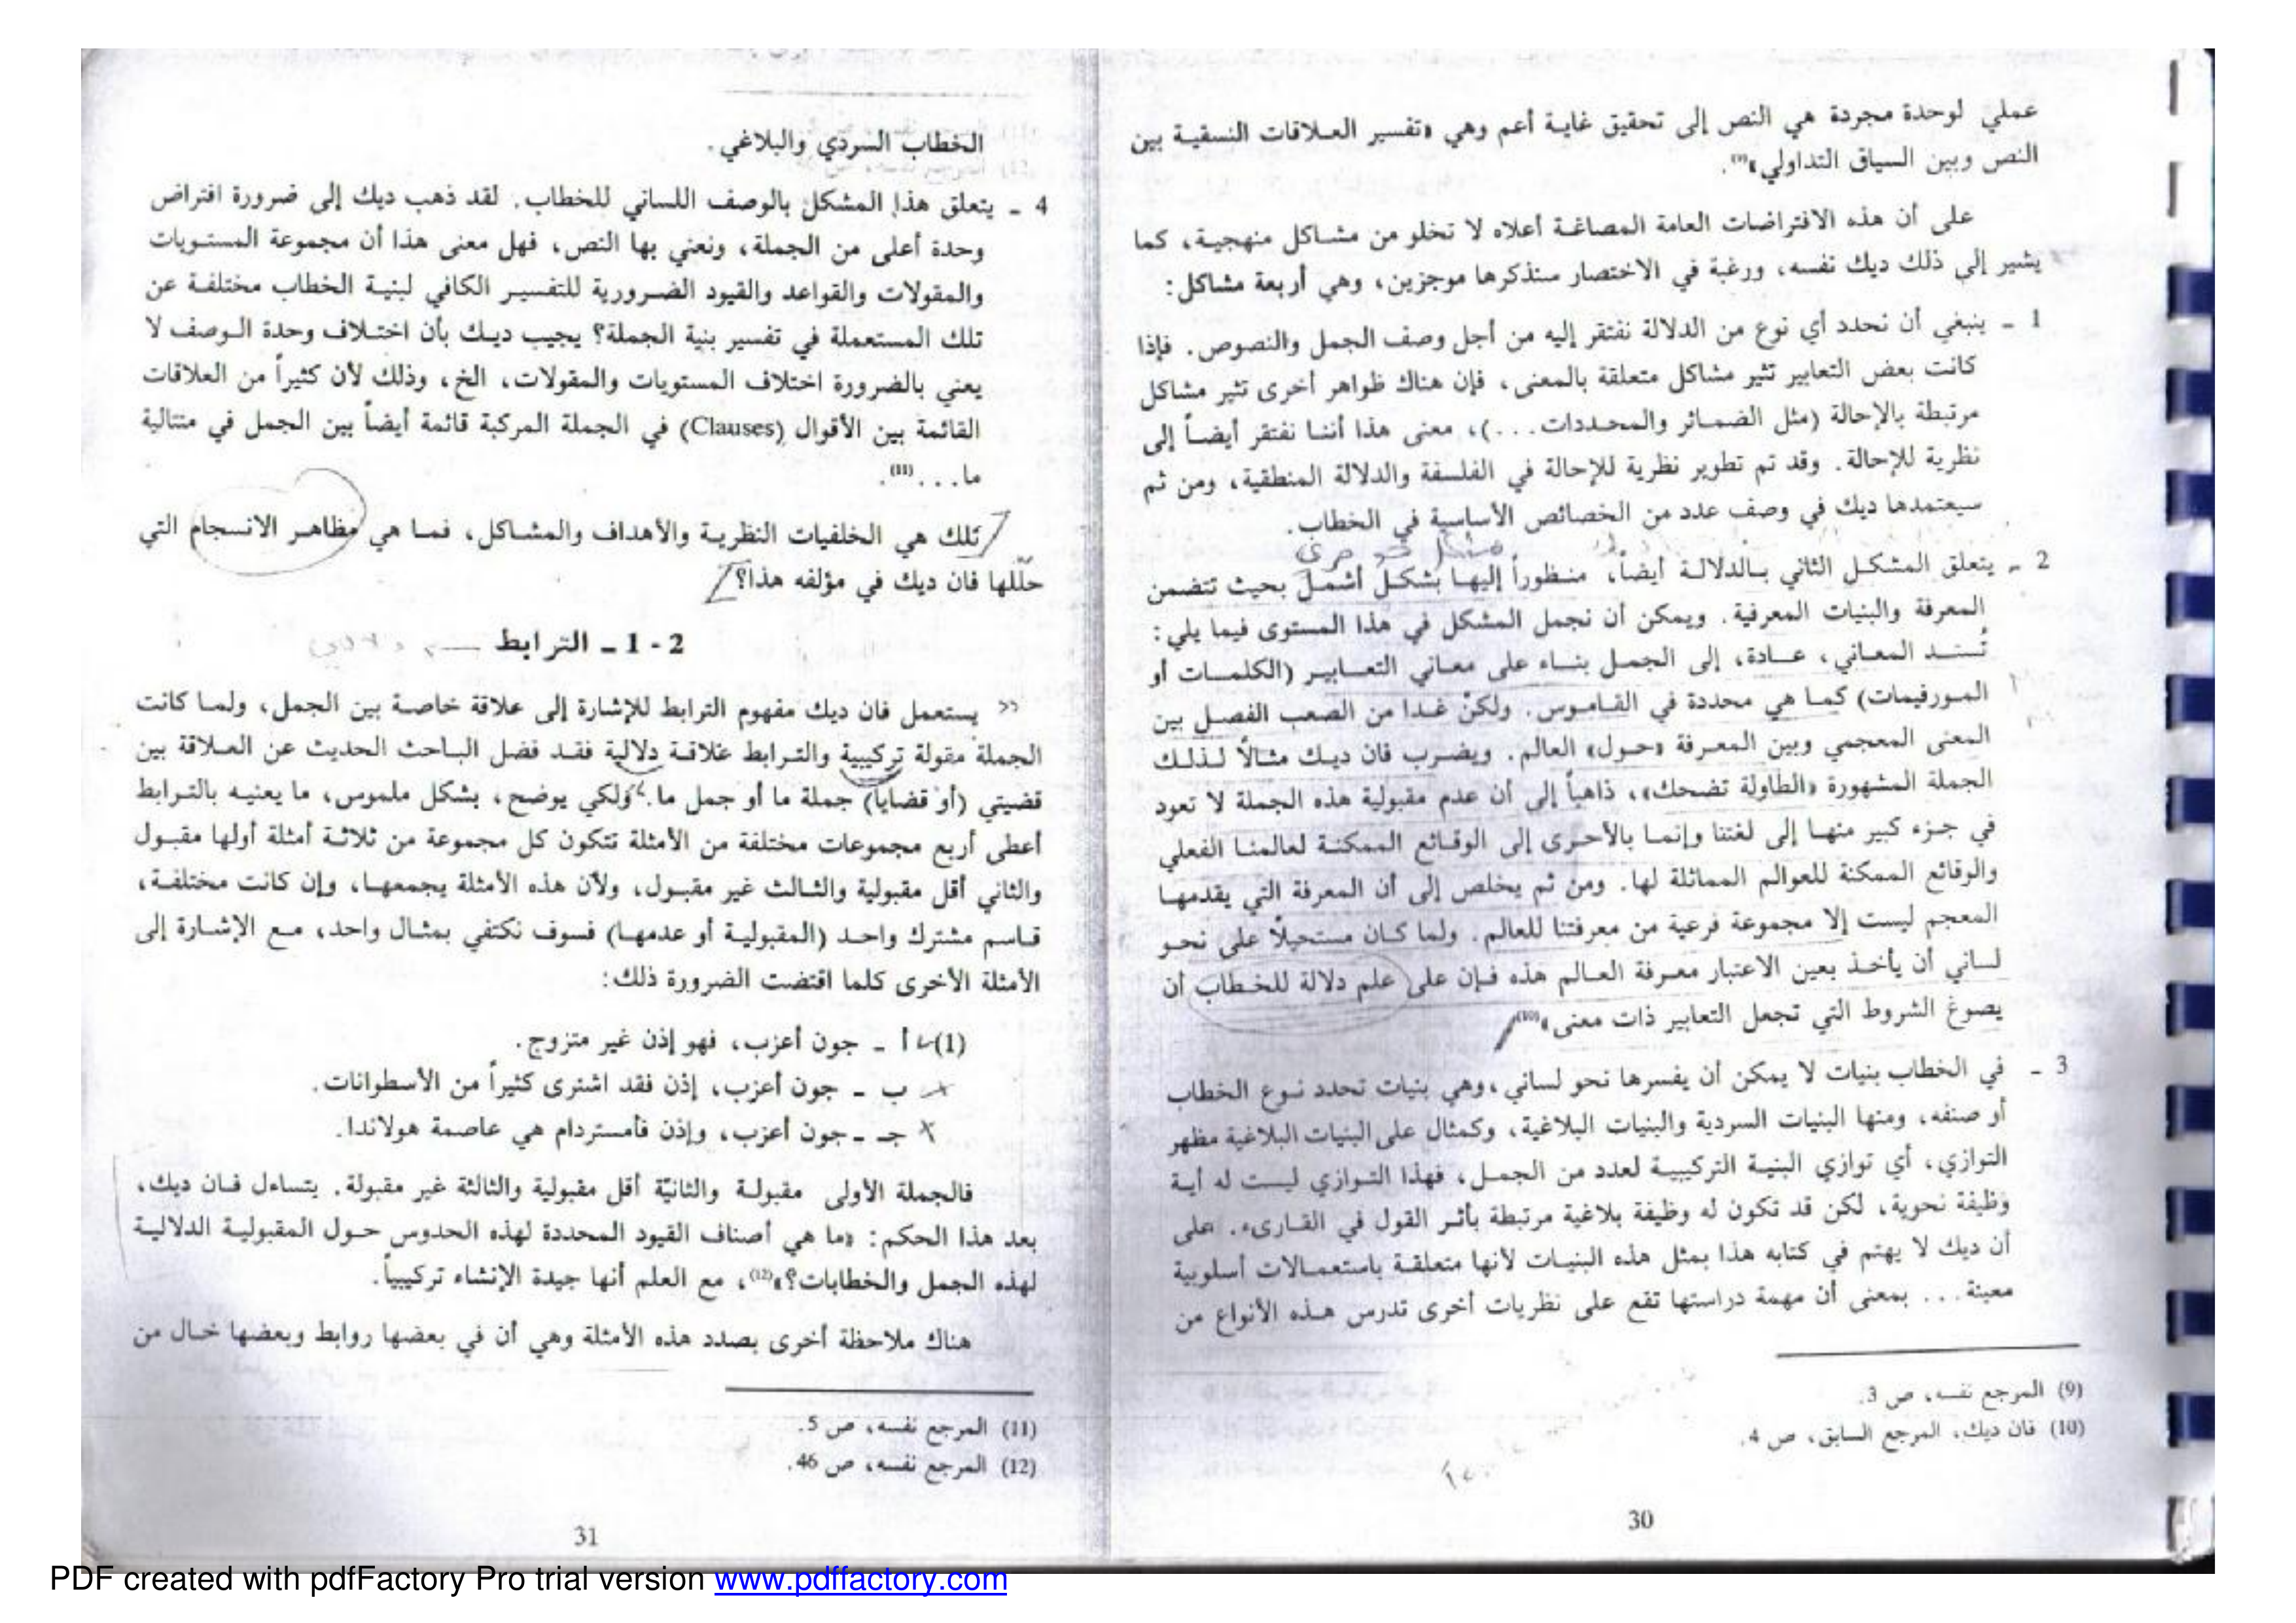 عملي لوحدة مجردة هي النص إلى تحقيق غاية أعم وهي «تفسير العلاقات النسقية بين
النص وبين السياق التداولي»(9).
على أن هذه الافتراضات العامة المصاغة أعلاه لا تخلو من مشاكل منهجية، كما
يشير إلى ذلك ديك نفسه، ورغبة في الاختصار سنذكرها موجزين، وهي أربعة مشاكل:
1 ـ ينبغي أن نحدد أي نوع من الدلالة نفتقر إليه من أجل وصف الجمل والنصوص. فإذا
كانت بعض التعابير تثير مشاكل متعلقة بالمعنى، فإن هناك ظواهر أخرى تثير مشاكل
مرتبطة بالإحالة (مثل الضمائر والمحددات...)، معنى هذا أننا نفتقر أيضاً إلى
نظرية للإحالة. وقد تم تطوير نظرية للإحالة في الفلسفة والدلالة المنطقية، ومن ثم
سيعتمدها ديك في وصف عدد من الخصائص الأساسية في الخطاب.
2 ـ يتعلق المشكل الثاني بالدلالة أيضاً، منظوراً إليها بشكل أشمل بحيث تتضمن
المعرفة والبنيات المعرفية. ويمكن أن نجمل المشكل في هذا المستوى فيما يلي:
تُسند المعاني، عادة، إلى الجمل بناء على معاني التعابير (الكلمات أو
المورفيمات) كما هي محددة في القاموس. ولكنْ غدا من الصعب الفصل بين
المعنى المعجمي وبين المعرفة «حول» العالم. ويضرب فان ديك مثالاً لذلك
الجملة المشهورة «الطاولة تضحك»، ذاهباً إلى أن عدم مقبولية هذه الجملة لا تعود
في جزء كبير منها إلى لغتنا وإنما بالأحرى إلى الوقائع الممكنة لعالمنا الفعلي
والوقائع الممكنة للعوالم المماثلة لها. ومن ثم يخلص إلى أن المعرفة التي يقدمها
المعجم ليست إلا مجموعة فرعية من معرفتنا للعالم. ولما كان مستحيلاً على نحو
لساني أن يأخذ بعين الاعتبار معرفة العالم هذه فإن على علم دلالة للخطاب أن
يصوغ الشروط التي تجعل التعابير ذات معنى»(10)
3 ـ في الخطاب بنيات لا يمكن أن يفسرها نحو لساني، وهي بنيات تحدد نوع الخطاب
أو صنفه، ومنها البنيات السردية والبنيات البلاغية، وكمثال على البنيات البلاغية مظهر
التوازي، أي توازي البنية التركيبية لعدد من الجمل، فهذا التوازي ليست له أية
وظيفة نحوية، لكن قد تكون له وظيفة بلاغية مرتبطة بأثر القول في القارىء. على
أن ديك لا يهتم في كتابه هذا بمثل هذه البنيات لأنها متعلقة باستعمالات أسلوبية
معينة... بمعنى أن مهمة دراستها تقع على نظريات أخرى تدرس هذه الأنواع من
(9) المرجع نفسه، ص 3.
(10) فان ديك، المرجع السابق، ص 4.
30
الخطاب السردي والبلاغي.
4 ـ يتعلق هذا المشكل بالوصف اللساني للخطاب. لقد ذهب ديك إلى ضرورة افتراض
وحدة أعلى من الجملة، ونعني بها النص، فهل معنى هذا أن مجموعة المستويات
والمقولات والقواعد والقيود الضرورية للتفسير الكافي لبنية الخطاب مختلفة عن
تلك المستعملة في تفسير بنية الجملة؟ يجيب ديك بأن اختلاف وحدة الوصف لا
يعني بالضرورة اختلاف المستويات والمقولات، الخ، وذلك لأن كثيراً من العلاقات
القائمة بين الأقوال (Clauses) في الجملة المركبة قائمة أيضاً بين الجمل في متتالية
ما...(11).
تلك هي الخلفيات النظرية والأهداف والمشاكل، فما هي مظاهر الانسجام التي
حلّلها فان ديك في مؤلفه هذا؟
2 - 1 ـ الترابط
يستعمل فان ديك مفهوم الترابط للإشارة إلى علاقة خاصة بين الجمل، ولما كانت
الجملة مقولة تركيبية والترابط علاقة دلالية فقد فضل الباحث الحديث عن العلاقة بين
قضيتي (أو قضايا) جملة ما أو جمل ما. ولكي يوضح، بشكل ملموس، ما يعنيه بالترابط
أعطى أربع مجموعات مختلفة من الأمثلة تتكون كل مجموعة من ثلاثة أمثلة أولها مقبول
والثاني أقل مقبولية والثالث غير مقبول، ولأن هذه الأمثلة يجمعها، وإن كانت مختلفة،
قاسم مشترك واحد (المقبولية أو عدمها) فسوف نكتفي بمثال واحد، مع الإشارة إلى
الأمثلة الأخرى كلما اقتضت الضرورة ذلك:
(1) أ ـ جون أعزب، فهو إذن غير متزوج.
ب ـ جون أعزب، إذن فقد اشترى كثيراً من الأسطوانات.
جـ ـ جون أعزب، وإذن فأمستردام هي عاصمة هولاندا.
فالجملة الأولى مقبولة والثانية أقل مقبولية والثالثة غير مقبولة. يتساءل فان ديك،
بعد هذا الحكم: «ما هي أصناف القيود المحددة لهذه الحدوس حول المقبولية الدلالية
لهذه الجمل والخطابات؟»(12)، مع العلم أنها جيدة الإنشاء تركيبياً.
هناك ملاحظة أخرى بصدد هذه الأمثلة وهي أن في بعضها روابط وبعضها خال من
(11) المرجع نفسه، ص 5.
(12) المرجع نفسه، ص 46.
31
PDF created with pdfFactory Pro trial version www.pdffactory.com